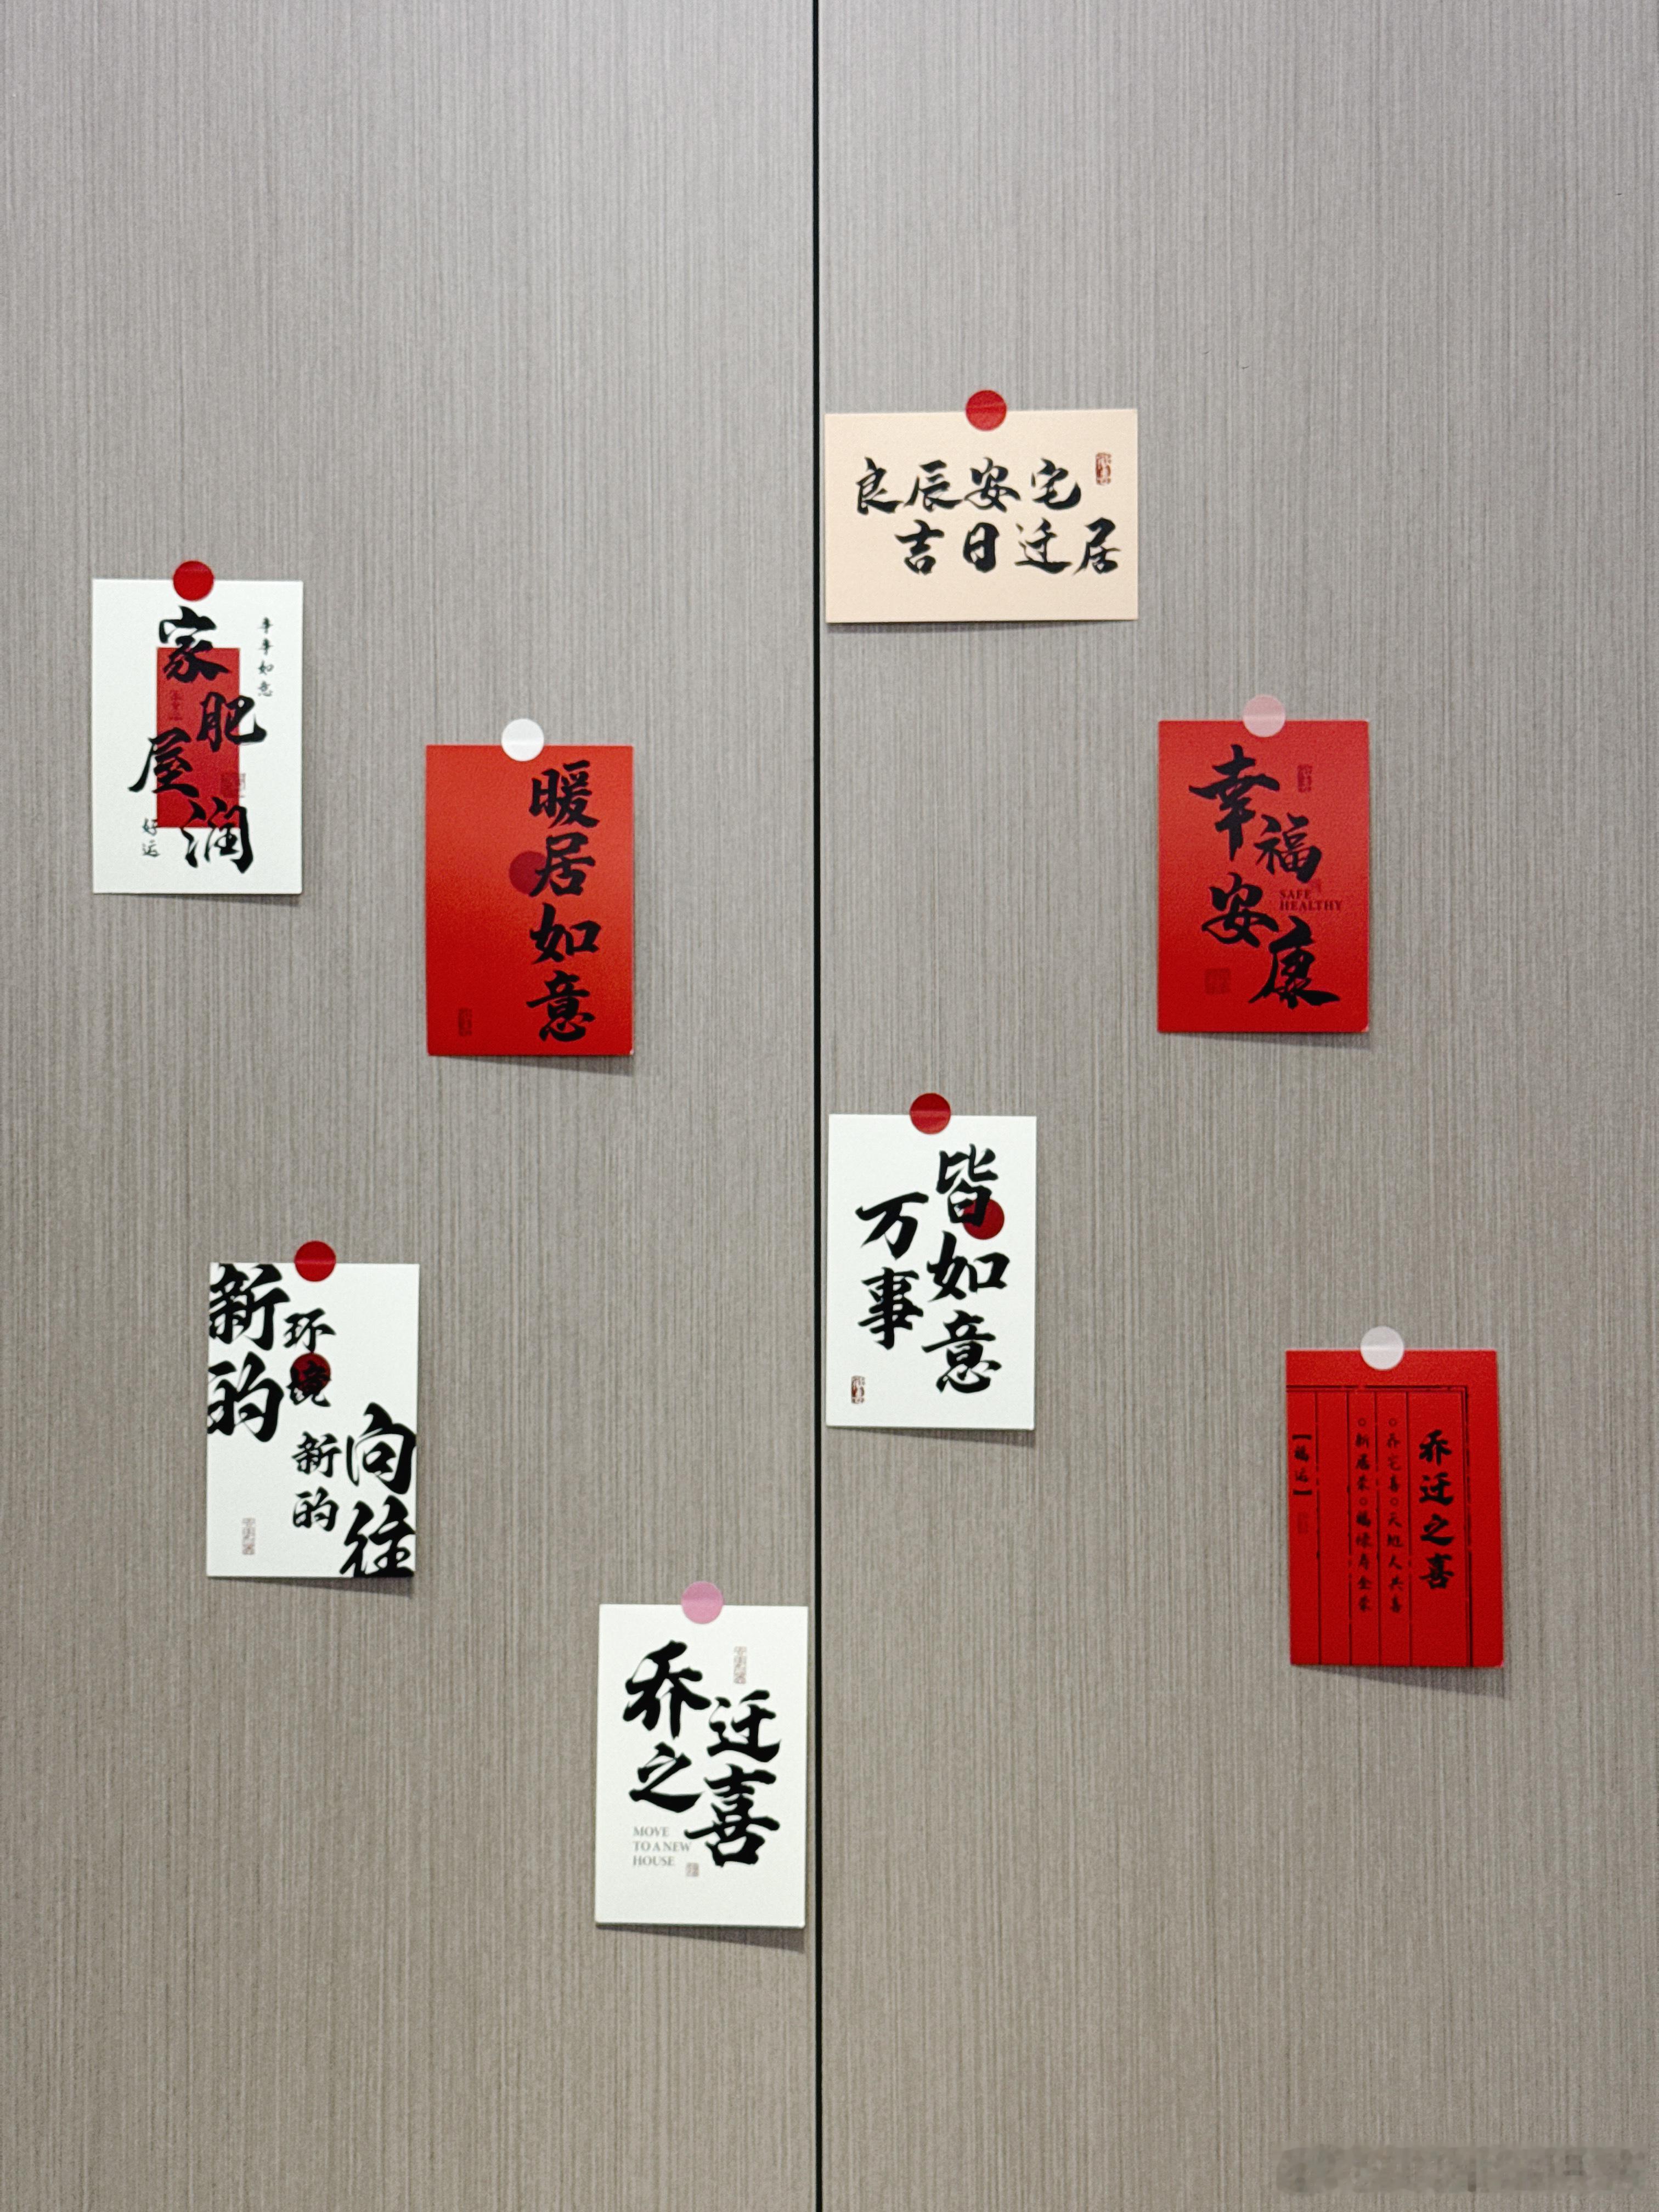 良辰安宅
吉日迁居
家肥屋润
事事如意
好运
暖居如意
幸福安康
SAFE
HEALTHY
万事
皆如意
新的
环境
新的
向往
乔迁之喜
乔宅喜 天地人共喜
新居荣 福禄寿全荣
【福运】
乔迁之喜
MOVE
TO A NEW
HOUSE